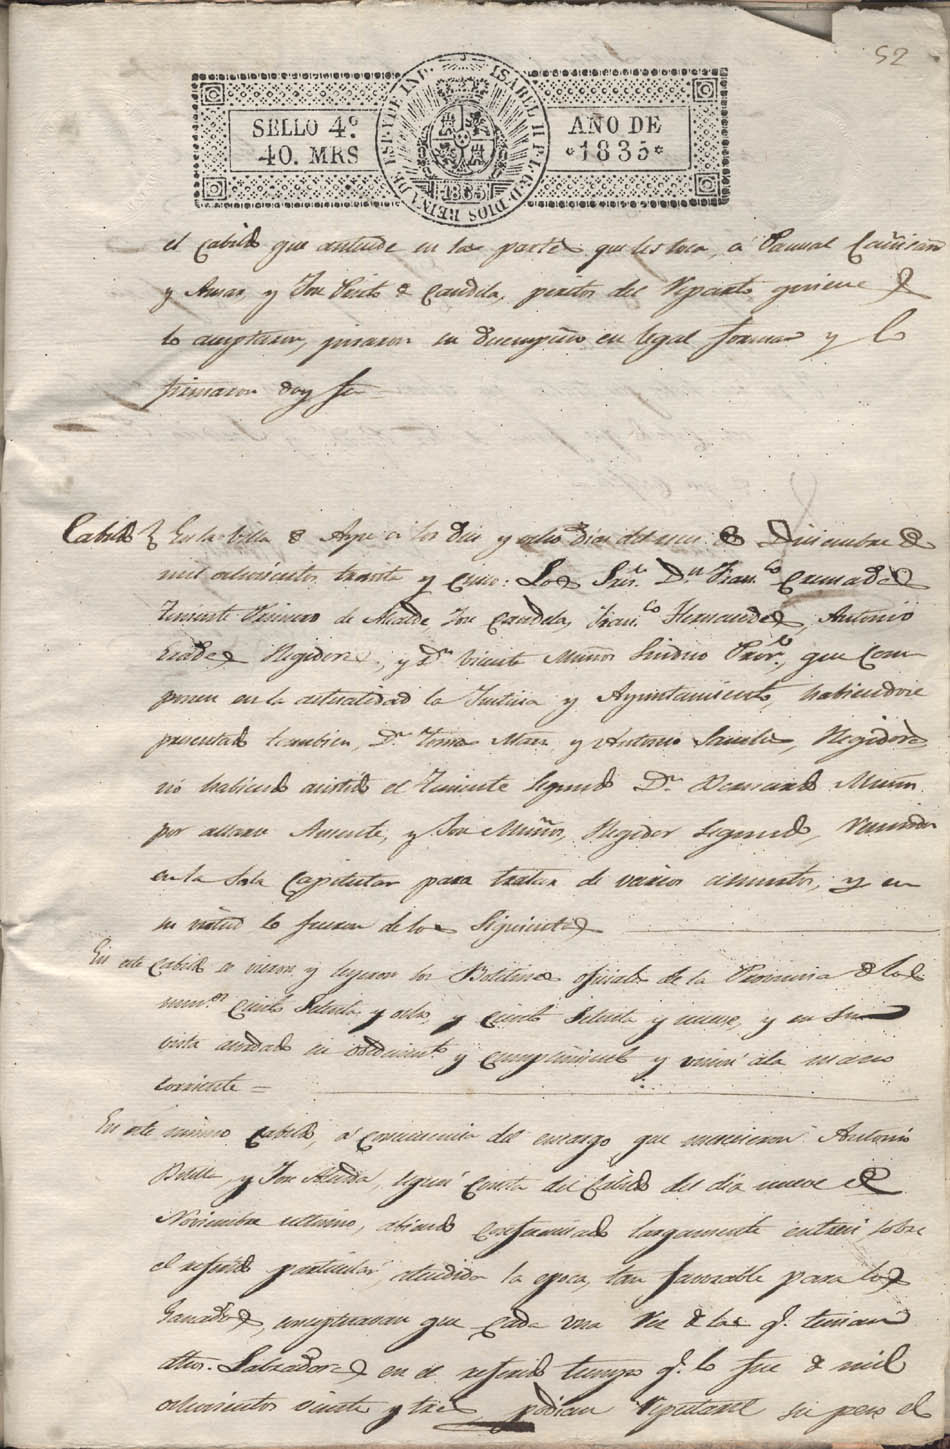 52
SELLO 4º
40. MRS
ISABEL II P. L. G. D. DIOS REINA DE ESP. Y DE IND.
1835
AÑO DE
1835
el Cabildo que antecede en la parte que les toca, á Pascual
y Amar, y Jose Pinto de Candela, peritos del Reparto
lo aceptaron, juraron su desempeño en legal forma y lo
firmaron doy fe =
Cabildo En la Villa de á los diez y ocho días del mes de Diciembre de
mil ochocientos treinta y cinco: Los Sres. Dn. Franco.
Teniente Primero de Alcalde, Jose Candela, Franco. Hernandez, Antonio
Regidores, y Dn. Vicente Muñoz Sindico Procor., que com
ponen en la actualidad la Justicia y Ayuntamiento, habiendose
presentado tambien, Dn. Tomas y Antonio Regidores
no habiendo asistido el Teniente Segundo Dn. Muñoz
por allarse Ausente, y Jose Muñoz, Regidor Segundo, Reunidos
en la Sala Capitular para tratar de varios asuntos, y en
su virtud lo fueron de los Siguientes
En este Cabildo se vieron y leyeron los Boletines oficiales de la Provincia de los
numros. Ciento Setenta y ocho, y Ciento Setenta y nueve, y en su
vista acordado su obedecimto. y cumplimiento y unir á la mano
corriente =
En este mismo Cabildo, á consecuencia del encargo que merecieron Antonio
y Jose según consta del Cabildo del día nueve de
Noviembre ultimo, abiendo conferenciado largamente entre si, sobre
el referido particular, atendida la epoca, tan favorable para los
Ganaderos, que cada una Res de las q. tenian
Labradores en el referido tiempo q. lo fue de mil
ochocientos veinte y tres, podian Reputarse su peso el